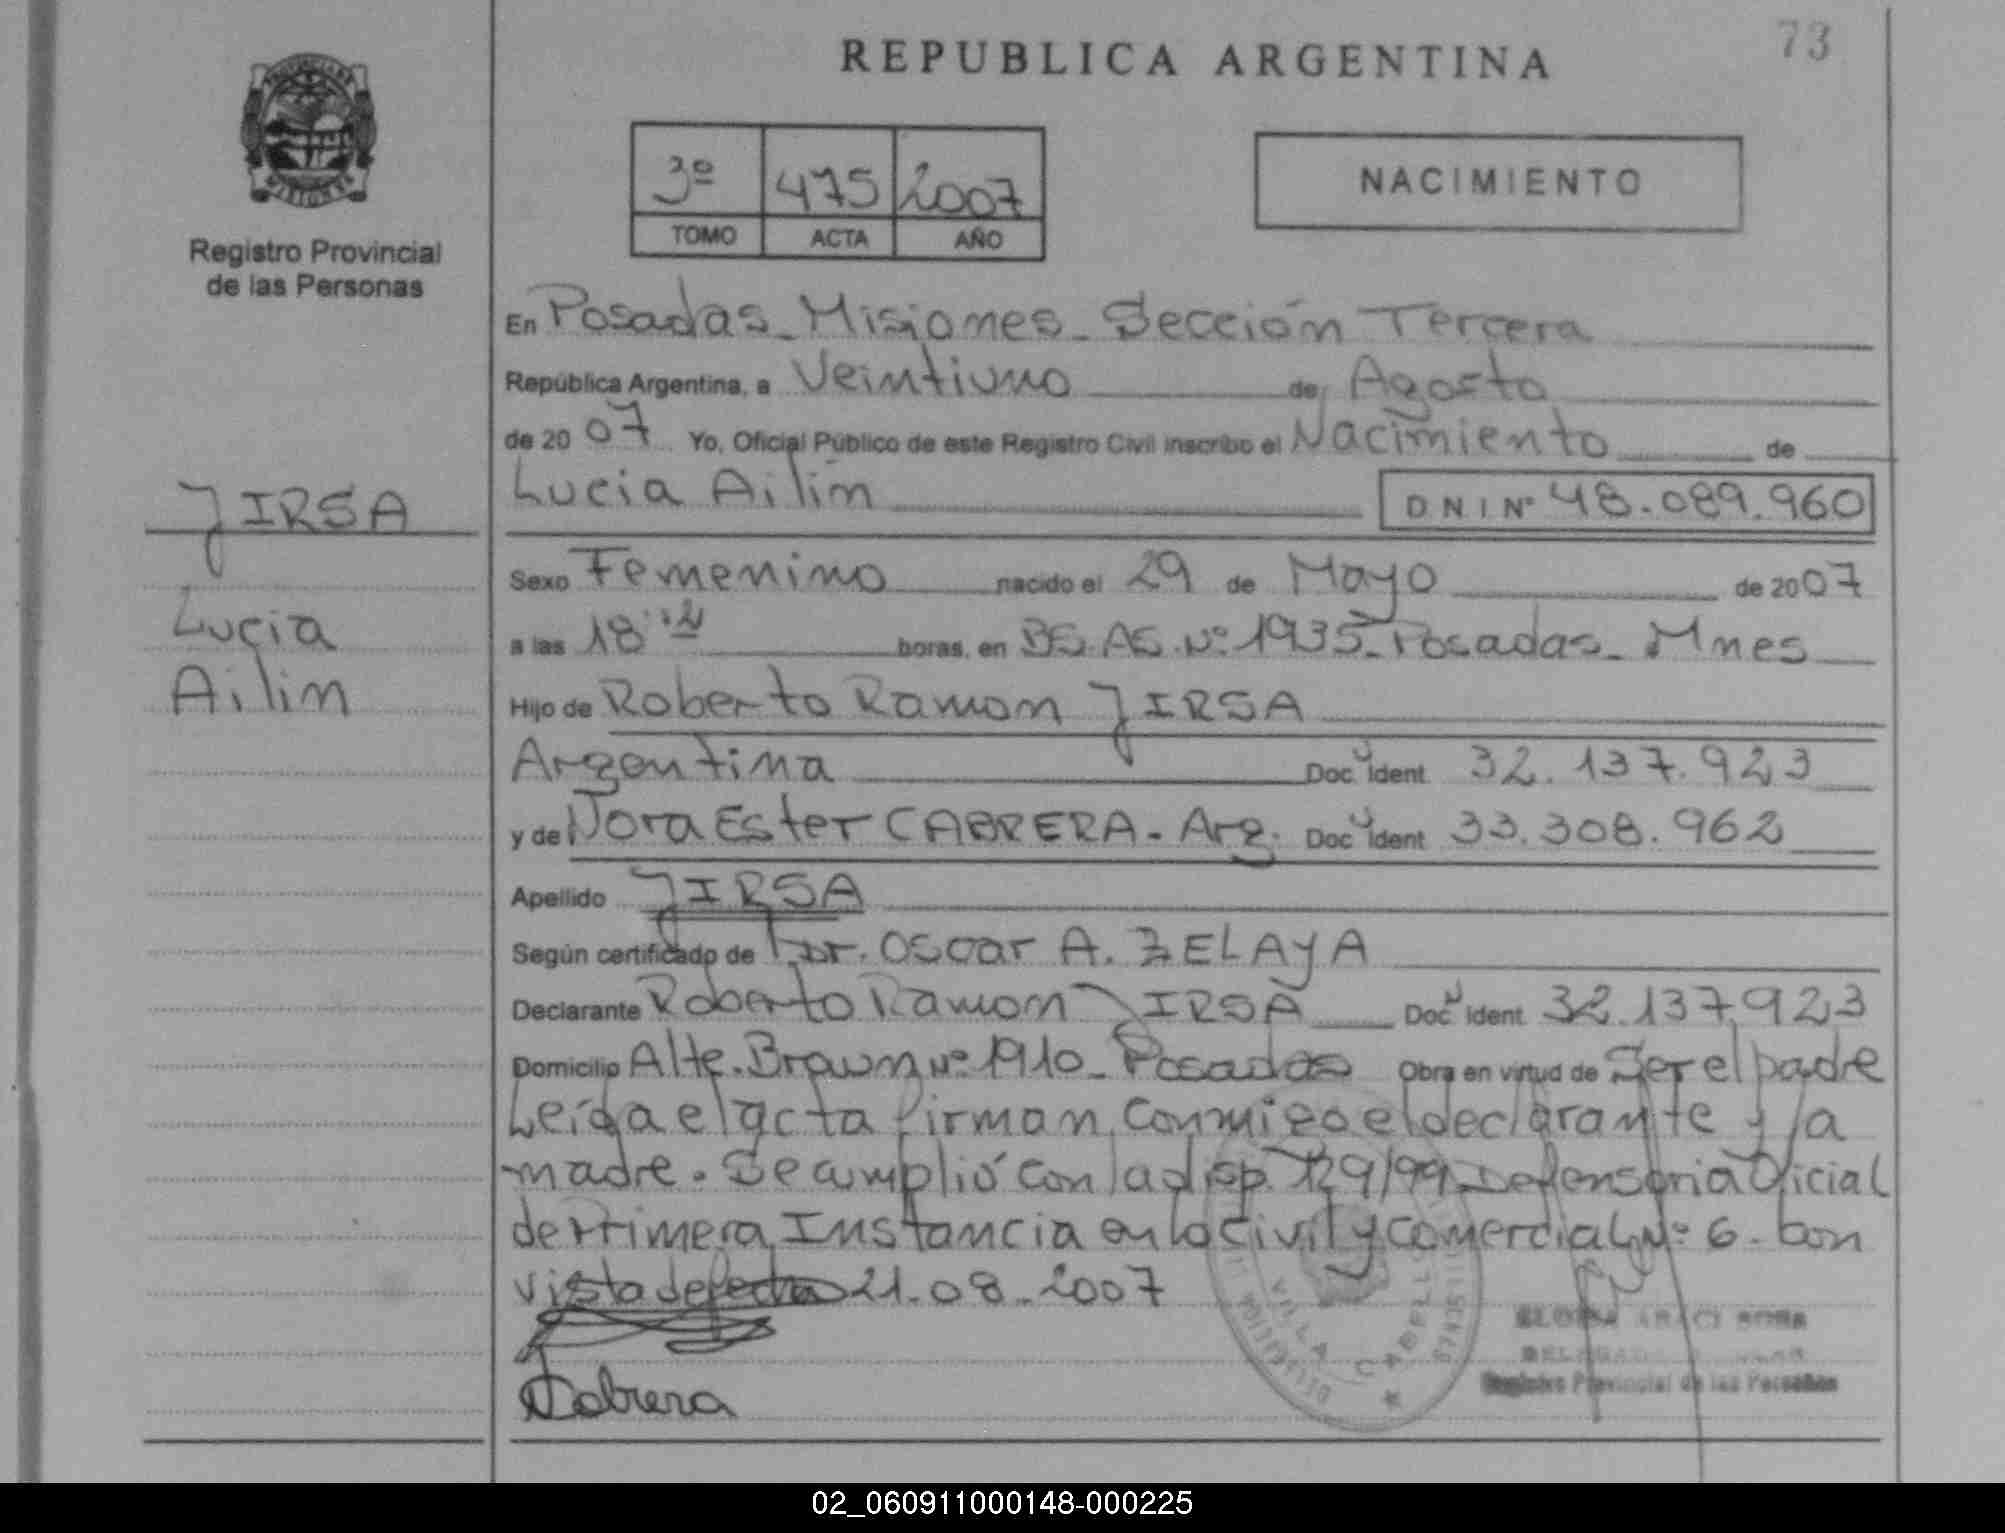 73
REPUBLICA ARGENTINA
PROVINCIA DE
MISIONES
Registro Provincial
de las Personas
3º 475 2007
TOMO ACTA AÑO
NACIMIENTO
En Posadas - Misiones - Sección Tercera
República Argentina, a Veintiuno de Agosto
de 2007 Yo, Oficial Público de este Registro Civil inscribo el Nacimiento de
Lucia Ailin DNI Nº 48.089.960
JIRSA
Lucia
Ailin
Sexo Femenino nacido el 29 de Mayo de 2007
a las 18 horas, en BS.AS. Nº 1935 - Posadas - Mnes
Hijo de Roberto Ramon JIRSA
Argentina Doc U Ident 32.137.923
y de Nora Ester CABRERA - Arg. Doc U Ident 33.308.962
Apellido JIRSA
Según certificado de Dr. Oscar A. ZELAYA
Declarante Roberto Ramon JIRSA Doc U Ident 32.137.923
Domicilio Alte. Brown Nº 1910 - Posadas Obra en virtud de Ser el padre
Leída el acta firman conmigo el declarante y la
madre. Se cumplió con la disp. 129/99 Defensoria Oficial
de Primera Instancia en lo Civil y Comercial Nº 6. Con
vista de fecha 21-08-2007
Cabrera
VILLA CABELLO
Registro Provincial de las Personas
02_060911000148-000225